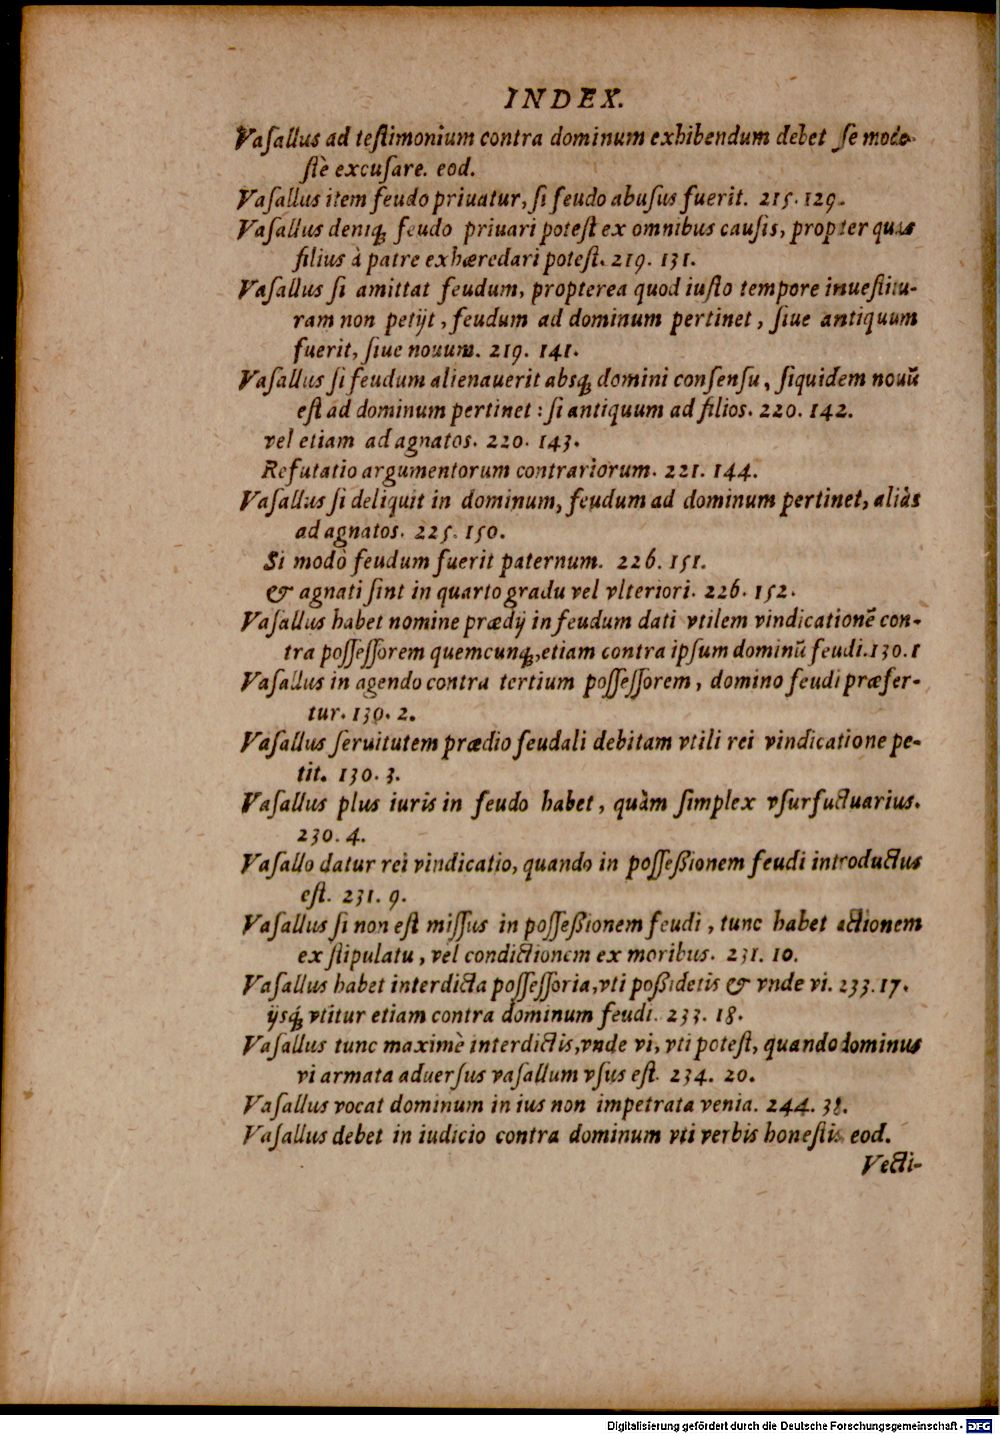 INDEX.
Vaſallus ad teſtimonium contra dominum exhibendum debet ſe mode-
ſtè excuſare. eod.
Vaſallus item feudo priuatur, ſi feudo abuſus fuerit. 215. 129.
Vaſallus deniq; feudo priuari poteſt ex omnibus cauſis, propter quas
filius à patre exhæredari poteſt. 219. 131.
Vaſallus ſi amittat feudum, propterea quod iuſto tempore inueſtitu-
ram non petijt, feudum ad dominum pertinet, ſiue antiquum
fuerit, ſiue nouum. 219. 141.
Vaſallus ſi feudum alienauerit absq; domini conſenſu, ſiquidem nouũ
eſt ad dominum pertinet: ſi antiquum ad filios. 220. 142.
vel etiam ad agnatos. 220. 143.
Refutatio argumentorum contrariorum. 221. 144.
Vaſallus ſi deliquit in dominum, feudum ad dominum pertinet, aliàs
ad agnatos. 225. 150.
Si modò feudum fuerit paternum. 226. 151.
& agnati ſint in quarto gradu vel vlteriori. 226. 152.
Vaſallus habet nomine prædij in feudum dati vtilem vindicationẽ con-
tra poſſeſſorem quemcunq;, etiam contra ipſum dominũ feudi. 130. 1
Vaſallus in agendo contra tertium poſſeſſorem, domino feudi præfer-
tur. 130. 2.
Vaſallus ſeruitutem prædio feudali debitam vtili rei vindicatione pe-
tit. 130. 3.
Vaſallus plus iuris in feudo habet, quàm ſimplex vſurfuctuarius.
230. 4.
Vaſallo datur rei vindicatio, quando in poſſeßionem feudi introductus
eſt. 231. 9.
Vaſallus ſi non eſt miſſus in poſſeßionem feudi, tunc habet actionem
ex ſtipulatu, vel condictionem ex moribus. 231. 10.
Vaſallus habet interdicta poſſeſſoria, vti poßidetis & vnde vi. 233. 17.
ijsq; vtitur etiam contra dominum feudi. 233. 18.
Vaſallus tunc maximè interdictis, vnde vi, vti poteſt, quando dominus
vi armata aduerſus vaſallum vſus eſt. 234. 20.
Vaſallus vocat dominum in ius non impetrata venia. 244. 38.
Vaſallus debet in iudicio contra dominum vti verbis honeſtis eod.
Vecti-
Digitalisierung gefördert durch die Deutsche Forschungsgemeinschaft - DFG